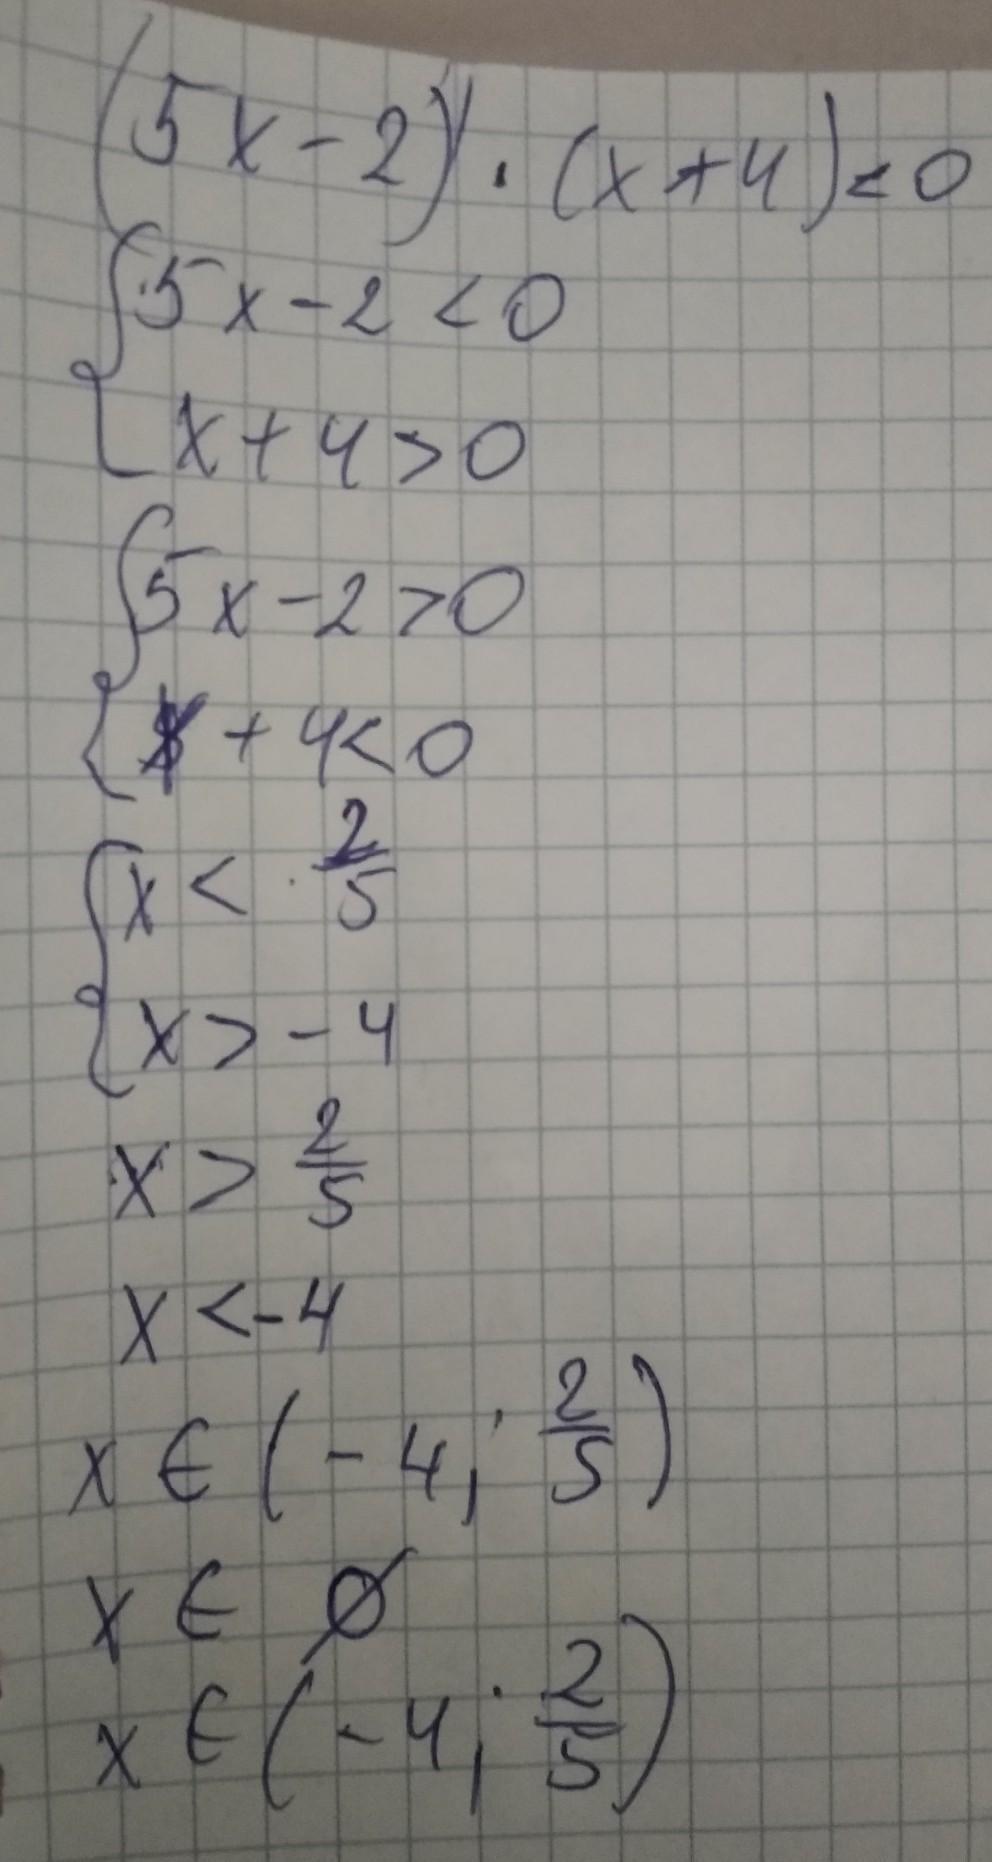 (5x-2)·(x+4)<0
{5x-2<0
x+4>0
{5x-2>0
x+4<0
{x<2/5
x>-4
x>2/5
x<-4
x∈(-4;2/5)
x∈∅
x∈(-4;2/5)